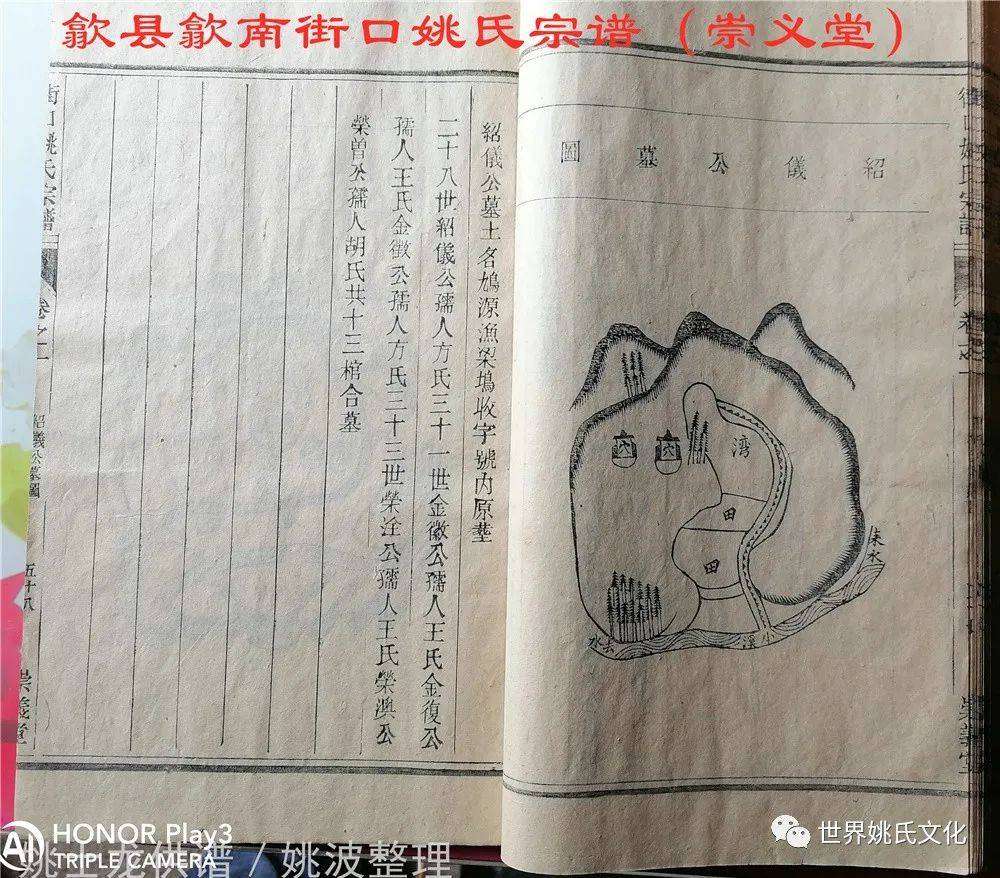 歙县歙南街口姚氏宗谱（崇义堂）
紹儀公墓圖
湾
穴
穴
田
田
來水
小溪
去水
紹儀公墓土名鳩源漁梁塢收字號內原塟
二十八世紹儀公孺人方氏三十一世金徽公孺人王氏金復公
孺人王氏金徵公孺人方氏三十三世榮淦公孺人王氏榮澳公
榮曾公孺人胡氏共十三棺合墓
街口姚氏宗譜
卷之一
紹儀公墓圖
五十八
崇義堂
HONOR Play3
TRIPLE CAMERA
AI
姚上龙供谱 / 姚波整理
世界姚氏文化